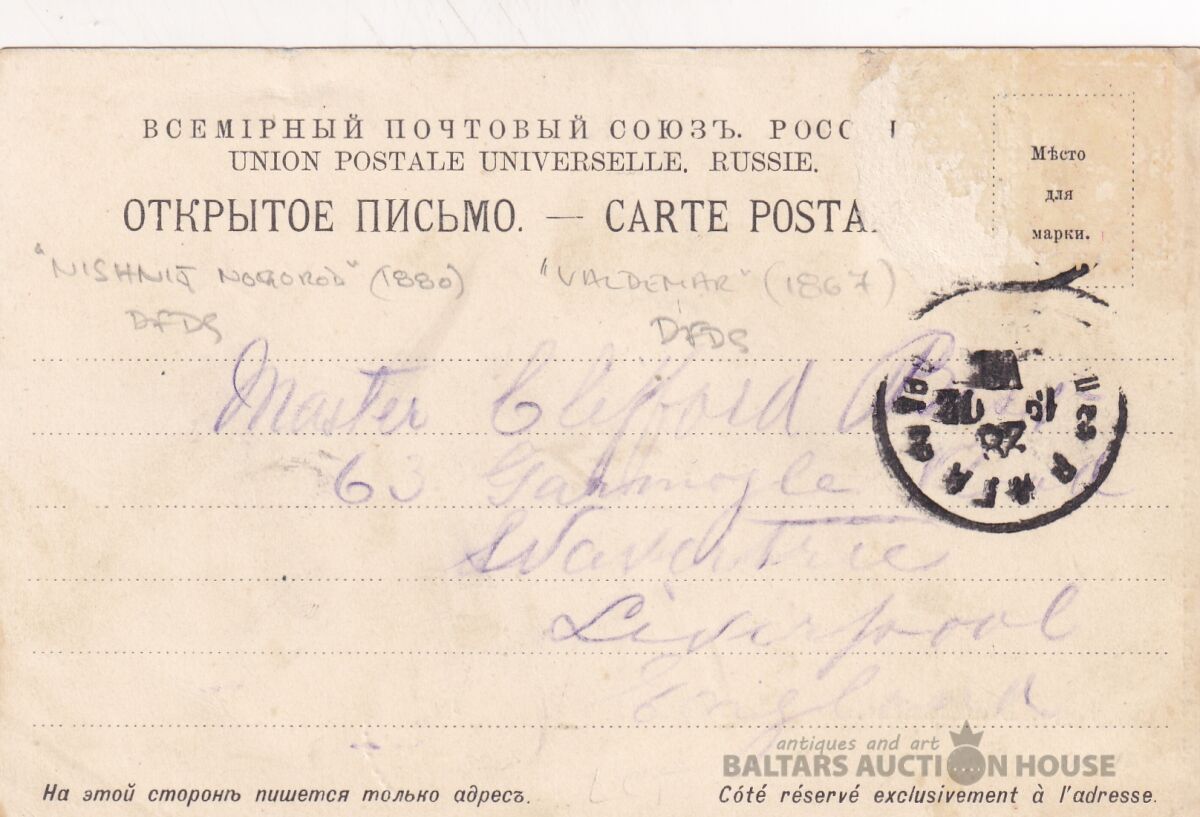 ВСЕМІРНЫЙ ПОЧТОВЫЙ СОЮЗЪ. РОСС
UNION POSTALE UNIVERSELLE. RUSSIE.
ОТКРЫТОЕ ПИСЬМО. — CARTE POSTA
Мѣсто
для
марки.
"NISHNIJ NOGOROD" (1880) "VALDEMAR" (1867)
DFDS DFDS
Master Clifford
63
Wavertree
Liverpool
England
antiques and art
BALTARS AUCTION HOUSE
На этой сторонѣ пишется только адресъ. Côté réservé exclusivement à l'adresse.